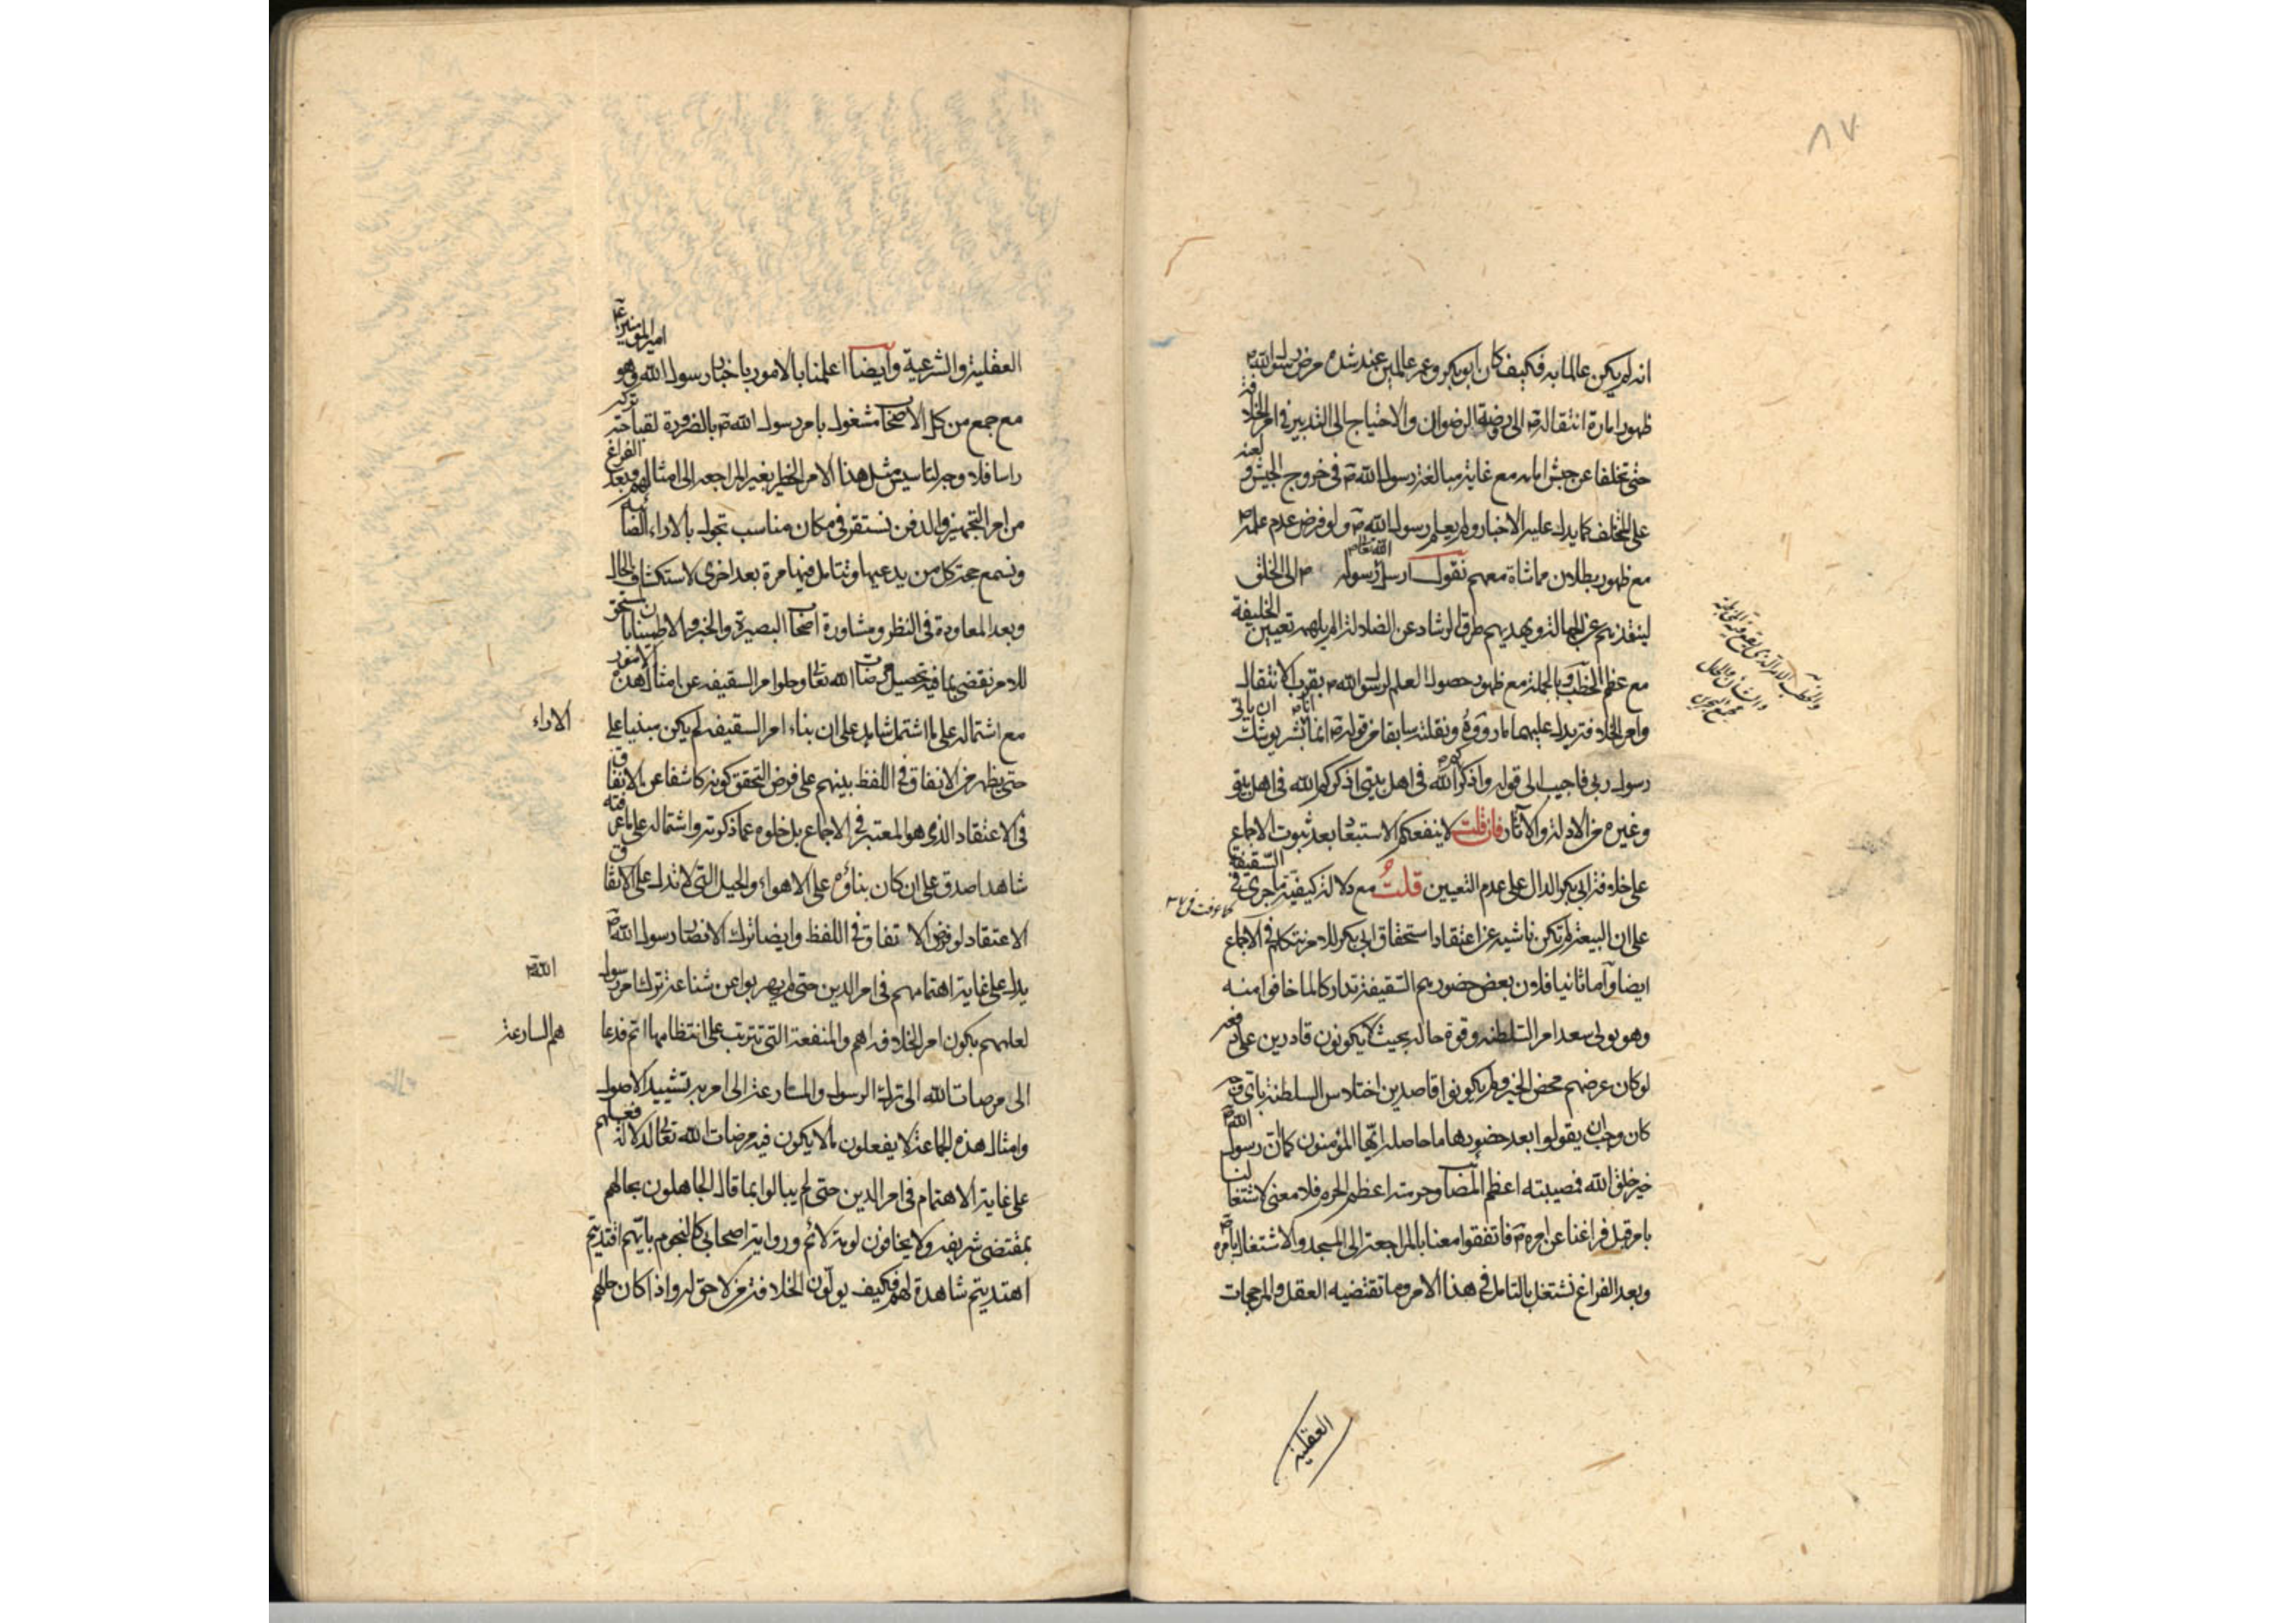 ٨٧
انه لم يكن عالما به فكيف كان ابو بكر وعمر عالمين عند شدة مرض رسول الله ص
ظهور امارة انتقاله ص الى روضة الرضوان والاحتياج الى التدبير في امر الخلافة
حتى تخلفا عن جيش اسامه مع غاية مبالغة رسول الله ص في خروج الجيش و لعنه
على المتخلف كما يدل عليه الاخبار ولم يعلم رسول الله ص ولو فرض عدم علمه ص
مع ظهور بطلان مماشاة معهم نقول ارسل الله تعالى رسوله ص الى الخلق
لينقذهم عن الجهالة ويهديهم طرق الرشاد عن الضلالة الم يلهمه تعيين الخليفة
مع عظم الخطب وبالجملة مع ظهور حصول العلم لرسول الله ص بقرب الانتقال
وامر الخلافة يدل عليهما ما رووه ونقلته سابقا من قوله ص انما انا بشر يوشك ان ياتي
رسول ربي فاجيب الى قوله واذكركم الله في اهل بيتي اذكركم الله في اهل بيتي
وغيره من الادلة والآثار فان قلت لا ينفعكم الاستبعاد بعد ثبوت الاجماع
على خلافة ابي بكر الدال على عدم التعيين قلت مع دلالة كيفية ما جرى في السقيفة
كما عرفت
على ان البيعة لم تكن ناشية عن اعتقاد استحقاق ابي بكر للامر نتكلم في الاجماع
ايضا واما ثانيا فلان بعض حضورهم السقيفة تداركا لما خافوا منه
وهو تولى سعد امر السلطنه وقوة حاله بحيث لا يكونون قادرين على دفعه
لو كان غرضهم محض الخير ولم يكونوا قاصدين اختلاس السلطنة باي وجه
كان وجب ان يقولوا بعد حضورها ما حاصله ايها المؤمنون كما ان رسول الله ص
خير خلق الله فمصيبته اعظم المصائب وحرمته اعظم الحرم فلا معنى لاشتغالنا
بامر قبل فراغنا عن امره ص فاتفقوا معنا بالمراجعة الى المسجد والاشتغال بامره ص
وبعد الفراغ نشتغل بالتامل في هذا الامر وما تقتضيه العقل والمرجحات
العقلية
العقلية والشرعية وايضا اعلمنا بالامور باخبار رسول الله ص وهو امير المؤمنين ع
مع جمع من كل الاصحاب مشغول بامر رسول الله ص بالضرورة لقباحة تركه
راسا فلا وجه لتاسيس مثل هذا الامر الخطير بغير المراجعه الى امثالهم وبعد الفراغ
من امر التجهيز والدفن نستقر في مكان مناسب تجول بالاراء الصائبة
ونسمع حجة كل من يدعيها ونتامل فيها مرة بعد اخرى لاستكشاف الحال
وبعد المعاودة في النظر ومشاورة اصحاب البصيرة والخبرة والاطمينان باستحق
للامر نقضي بما فيه تحصيل مرضات الله تعالى وخلو امر السقيفه عن امثال هذه الامور
مع اشتماله على ما اشتمل شاهد على ان بناء امر السقيفه لم يكن مبنيا على
الاراء
حتى يظهر من الاتفاق في اللفظ بينهم على فرض التحقق كونه كاشفا عن الاتفاق
في الاعتقاد الذي هو المعتبر في الاجماع بل خلوه عما ذكرته واشتماله على ما عرفته
شاهدا صدق على ان كان بناؤه على الاهواء والحيل التي لا تدل على الاتفاق
الاعتقاد لو فرض الاتفاق في اللفظ وايضا ترك الانصار رسول الله ص
يدل على غاية اهتمامهم في امر الدين حتى لم يهربوا عن شناعة ترك امر رسول
الله ص
لعلمهم بكون امر الخلافه اهم والمنفعة التي تترتب على انتظامها اتم فدعا
هم المسارعة
الى مرضات الله الى ترك الرسول والمسارعة الى امر به تشييد الاصول
وامثال هذه الجماعة لا يفعلون ما لا يكون فيه مرضات الله تعالى لدلالة فعلهم
على غاية الاهتمام في امر الدين حتى لم يبالوا بما قال الجاهلون بحالهم
بمقتضى شريفه ولا يخافون لومة لائم ورواية اصحابي كالنجوم بايهم اقتديتم
اهتديتم شاهدة لهم فكيف يولون الخلافة من لا حق له واذا كان حالهم